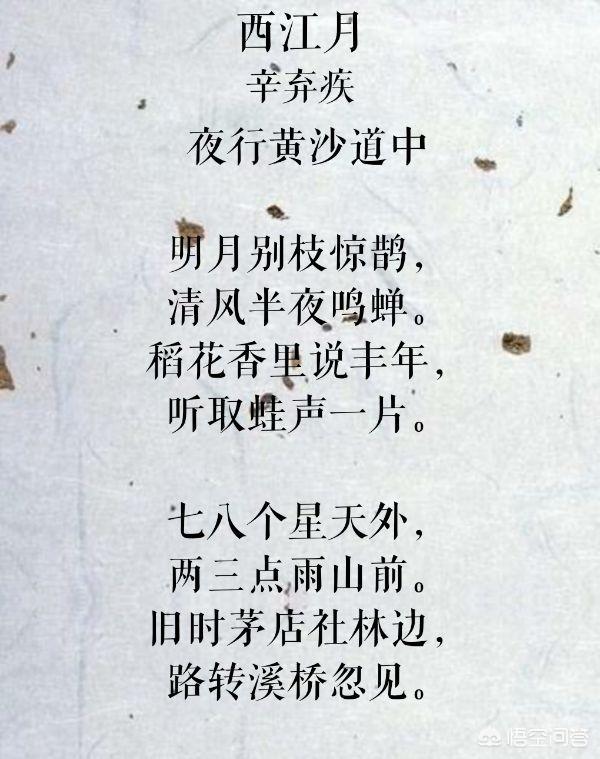 西江月
辛弃疾
夜行黄沙道中
明月别枝惊鹊，
清风半夜鸣蝉。
稻花香里说丰年，
听取蛙声一片。
七八个星天外，
两三点雨山前。
旧时茅店社林边，
路转溪桥忽见。
悟空问答